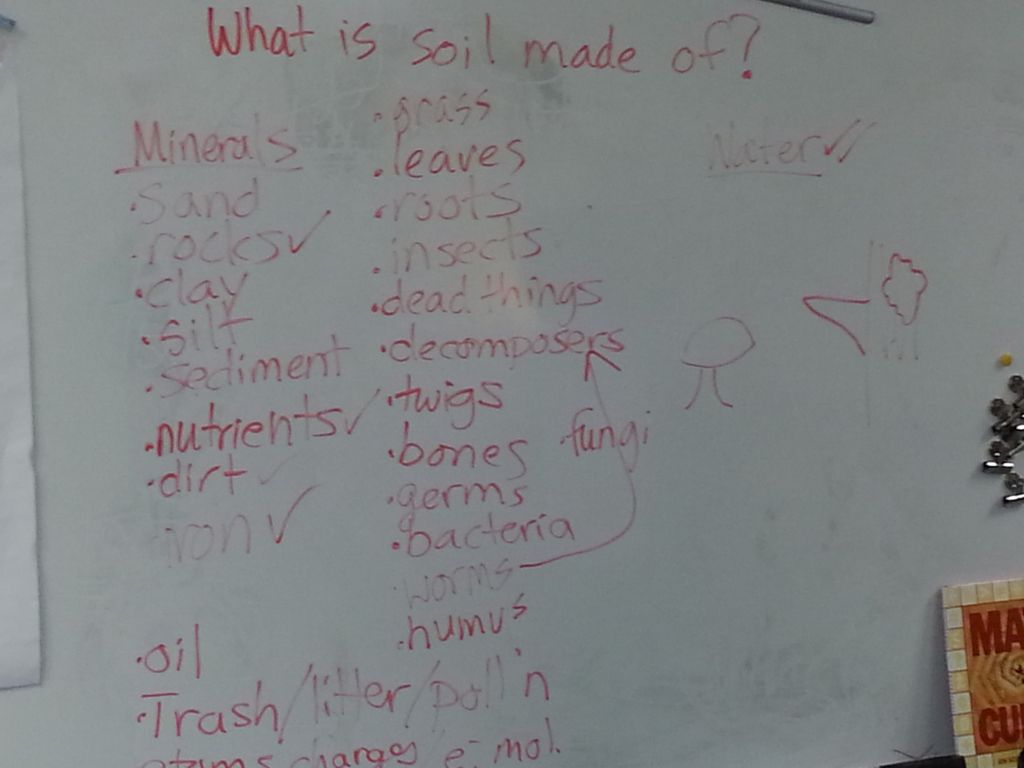 What is soil made of?
Minerals
. sand
. rocks ✓
. clay
. silt
. sediment
. nutrients ✓
. dirt ✓
iron ✓
. grass
. leaves
. roots
. insects
. dead things
. decomposers
. twigs
. bones
. fungi
. germs
. bacteria
. worms
. humus
Water ✓✓
. oil
. Trash/litter/poll'n
atoms charges e- mol.
MA
CU